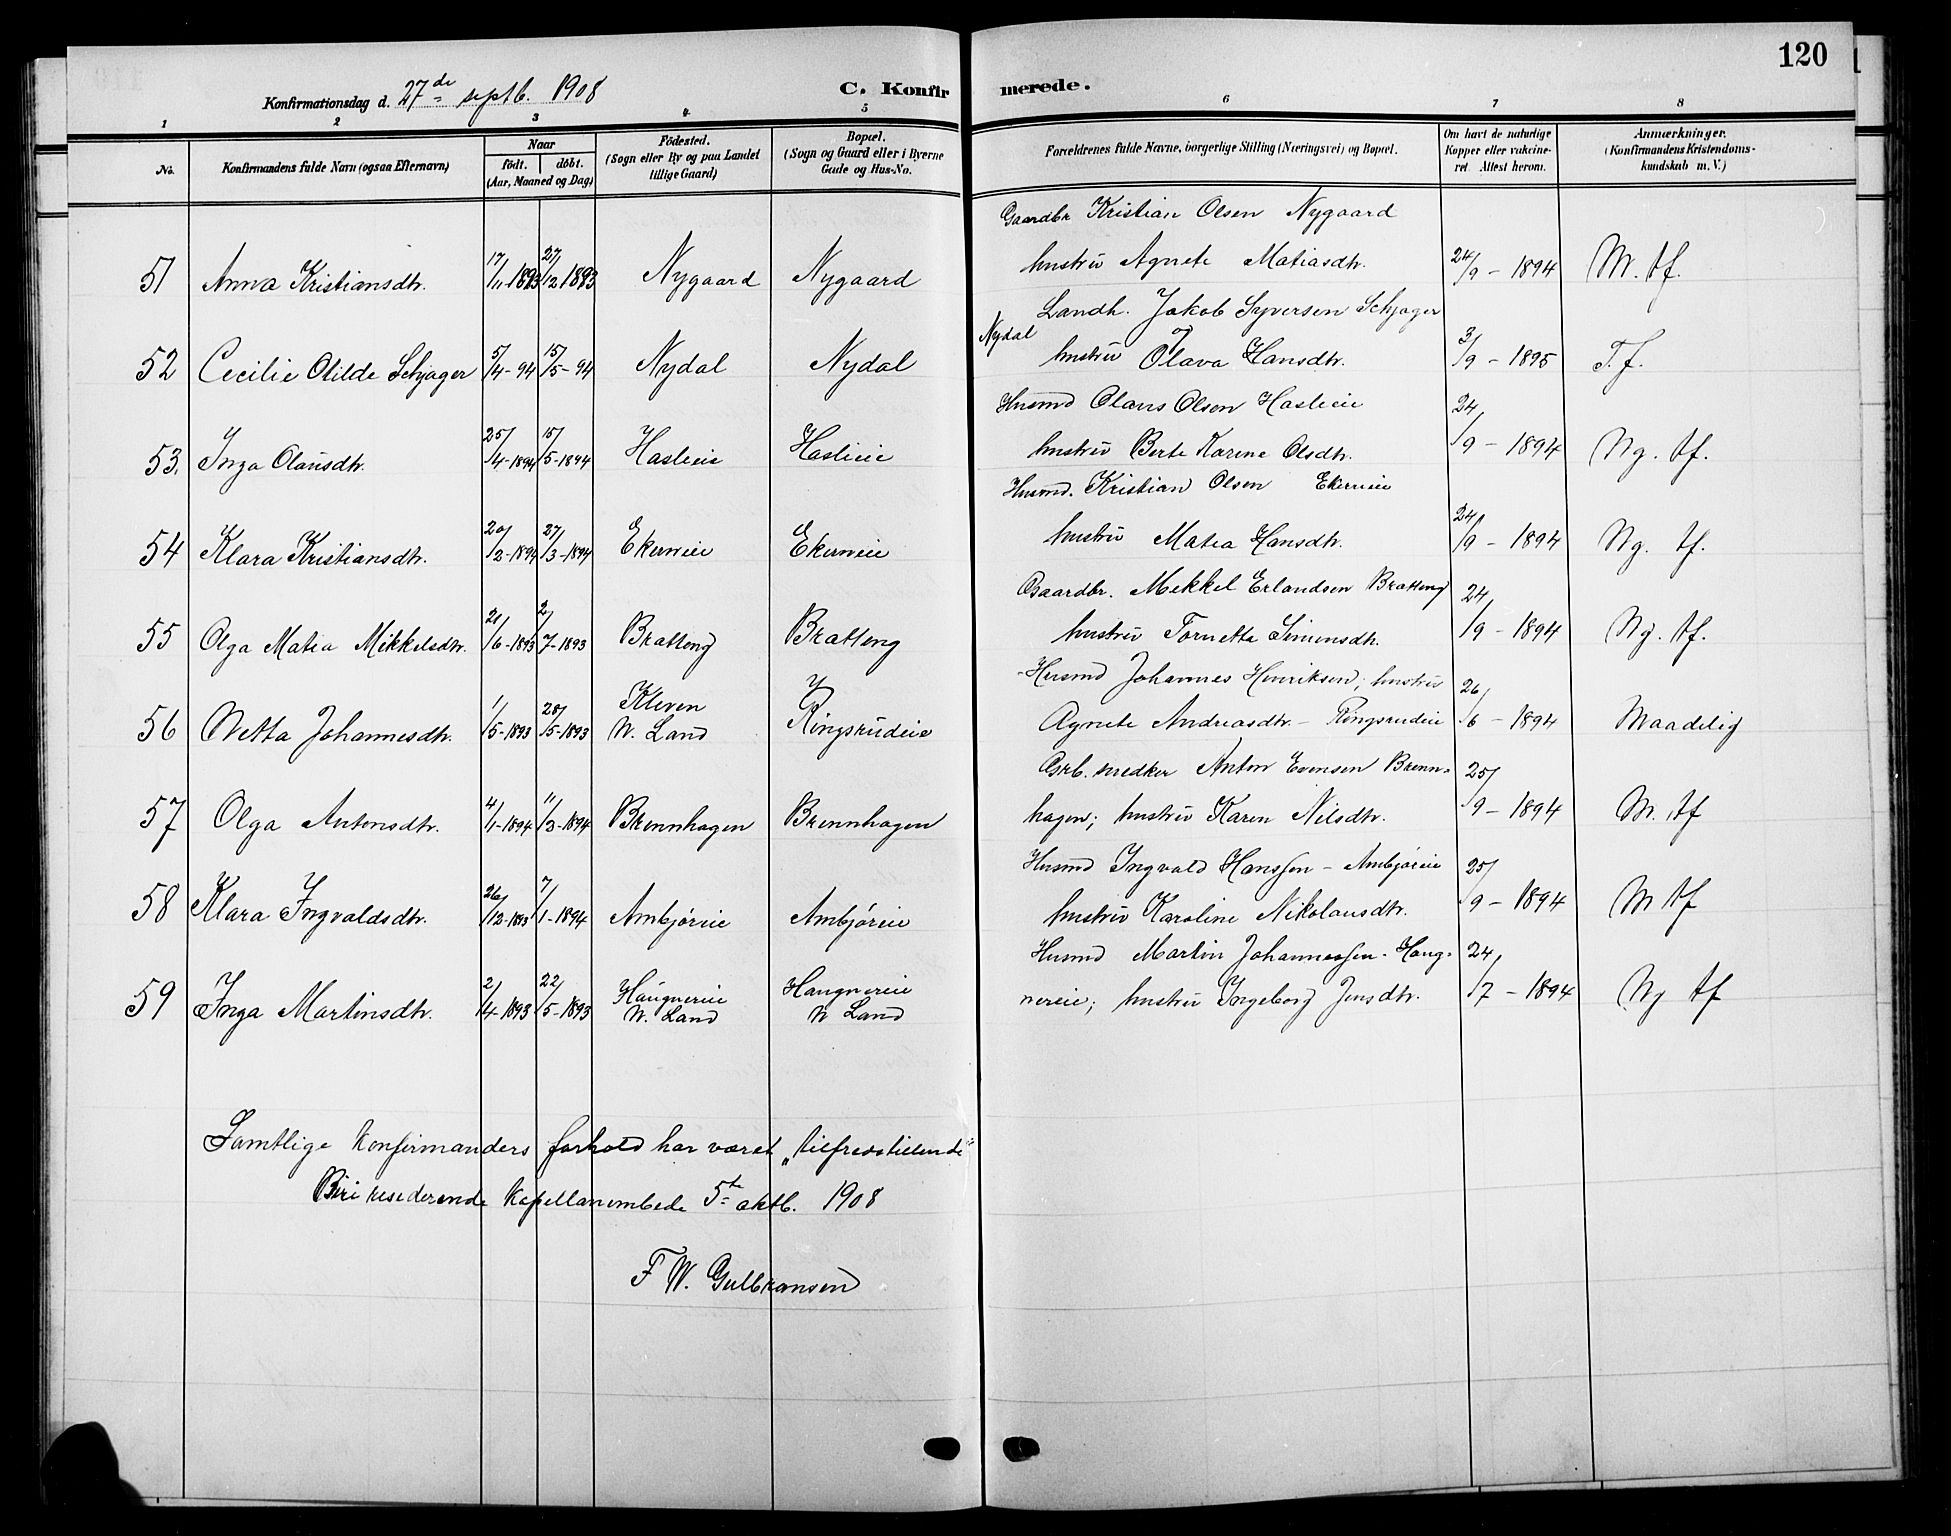 120
Konfirmationsdag d. 27de septb. 1908
C. Konfirmerede.
1 2 3 4 5 6 7 8
No. Konfirmandens fulde Navn (ogsaa Efternavn) Naar födt. döbt. (Aar, Maaned og Dag) Födested. (Sogn eller By og paa Landet tillige Gaard) Bopæl. (Sogn og Gaard eller i Byerne Gade og Hus-No. Forældrenes fulde Navne, borgerlige Stilling (Næringsvei) og Bopæl. Om havt de naturlige Kopper eller vakcineret. Attest herom. Anmærkninger. (Konfirmandens Kristendomskundskab m. V.)
Gaardbr Kristian Olsen Nygaard
51 Anna Kristiansdtr. 17/11-1893 27/12 1893 Nygaard Nygaard hustru Agnete Matiasdtr. 24/9 - 1894 M. tf.
Landh. Jakob Syversen Schjager
Nydal og
52 Cecilie Otilde Schjager 5/4-94 15/5-94 Nydal Nydal hustru Olava Hansdtr. 3/9 - 1895 T. f.
Husmd Olaus Olsen Haslieie
53. Inga Olausdtr. 25/4-1894 15/5-1894 Haslieie Haslieie hustru Berte Karene Olsdtr. 24/9 - 1894 Ng. tf.
Husmd. Kristian Olsen Ekerneie
54 Klara Kristiansdtr. 20/2-1894 27/3-1894 Ekerneie Ekerneie hustru Matea Hansdtr. 24/9 - 1894 Ng. tf.
Gaardbr. Mekkel Erlandsen Bratteng
55 Olga Matea Mikkelsdtr. 21/6-1893 2/7-1893 Bratteng Bratteng hustru Tornette Simensdtr. 24/9 - 1894 Ng. tf.
Husmd Johannes Henriksen; hustru
56 Netta Johannesdtr. 1/5-1893 28/5-1893 Kleven N. Land Ringsrudeie Agnete Andreasdtr. - Ringsrudeie 26/6 - 1894 Maadelig
Grb. snedker Anton Evensen Brenn-
57 Olga Antonsdtr. 4/1-1894 11/3-1894 Brennhagen Brennhagen hagen; hustru Karen Nilsdtr. 25/9 - 1894 M. tf
Husmd Ingvald Hanssen - Ambjøreie
58 Klara Ingvaldsdtr. 26/12-1893 7/1-1894 Ambjøreie Ambjøreie hustru Karoline Nikolausdtr. 25/9 - 1894 M tf
Husmd Martin Johannessen - Haug-
59 Inga Martinsdtr. 2/4-1893 22/5-1893 Haugnereie N. Land Haugnereie N Land nereie; hustru Ingeborg Jensdtr. 24/7 - 1894 Ng tf
Samtlige konfirmanders forhold har været „tilfredsstillende“
Biri residerende kapellanembede 5te oktb. 1908
F W. Gulbransen